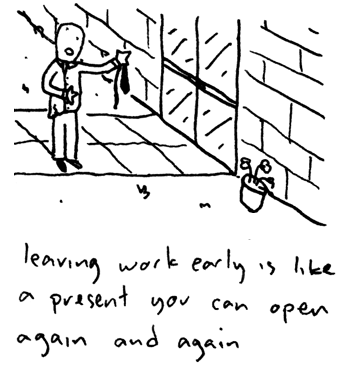 leaving work early is like
a present you can open
again and again